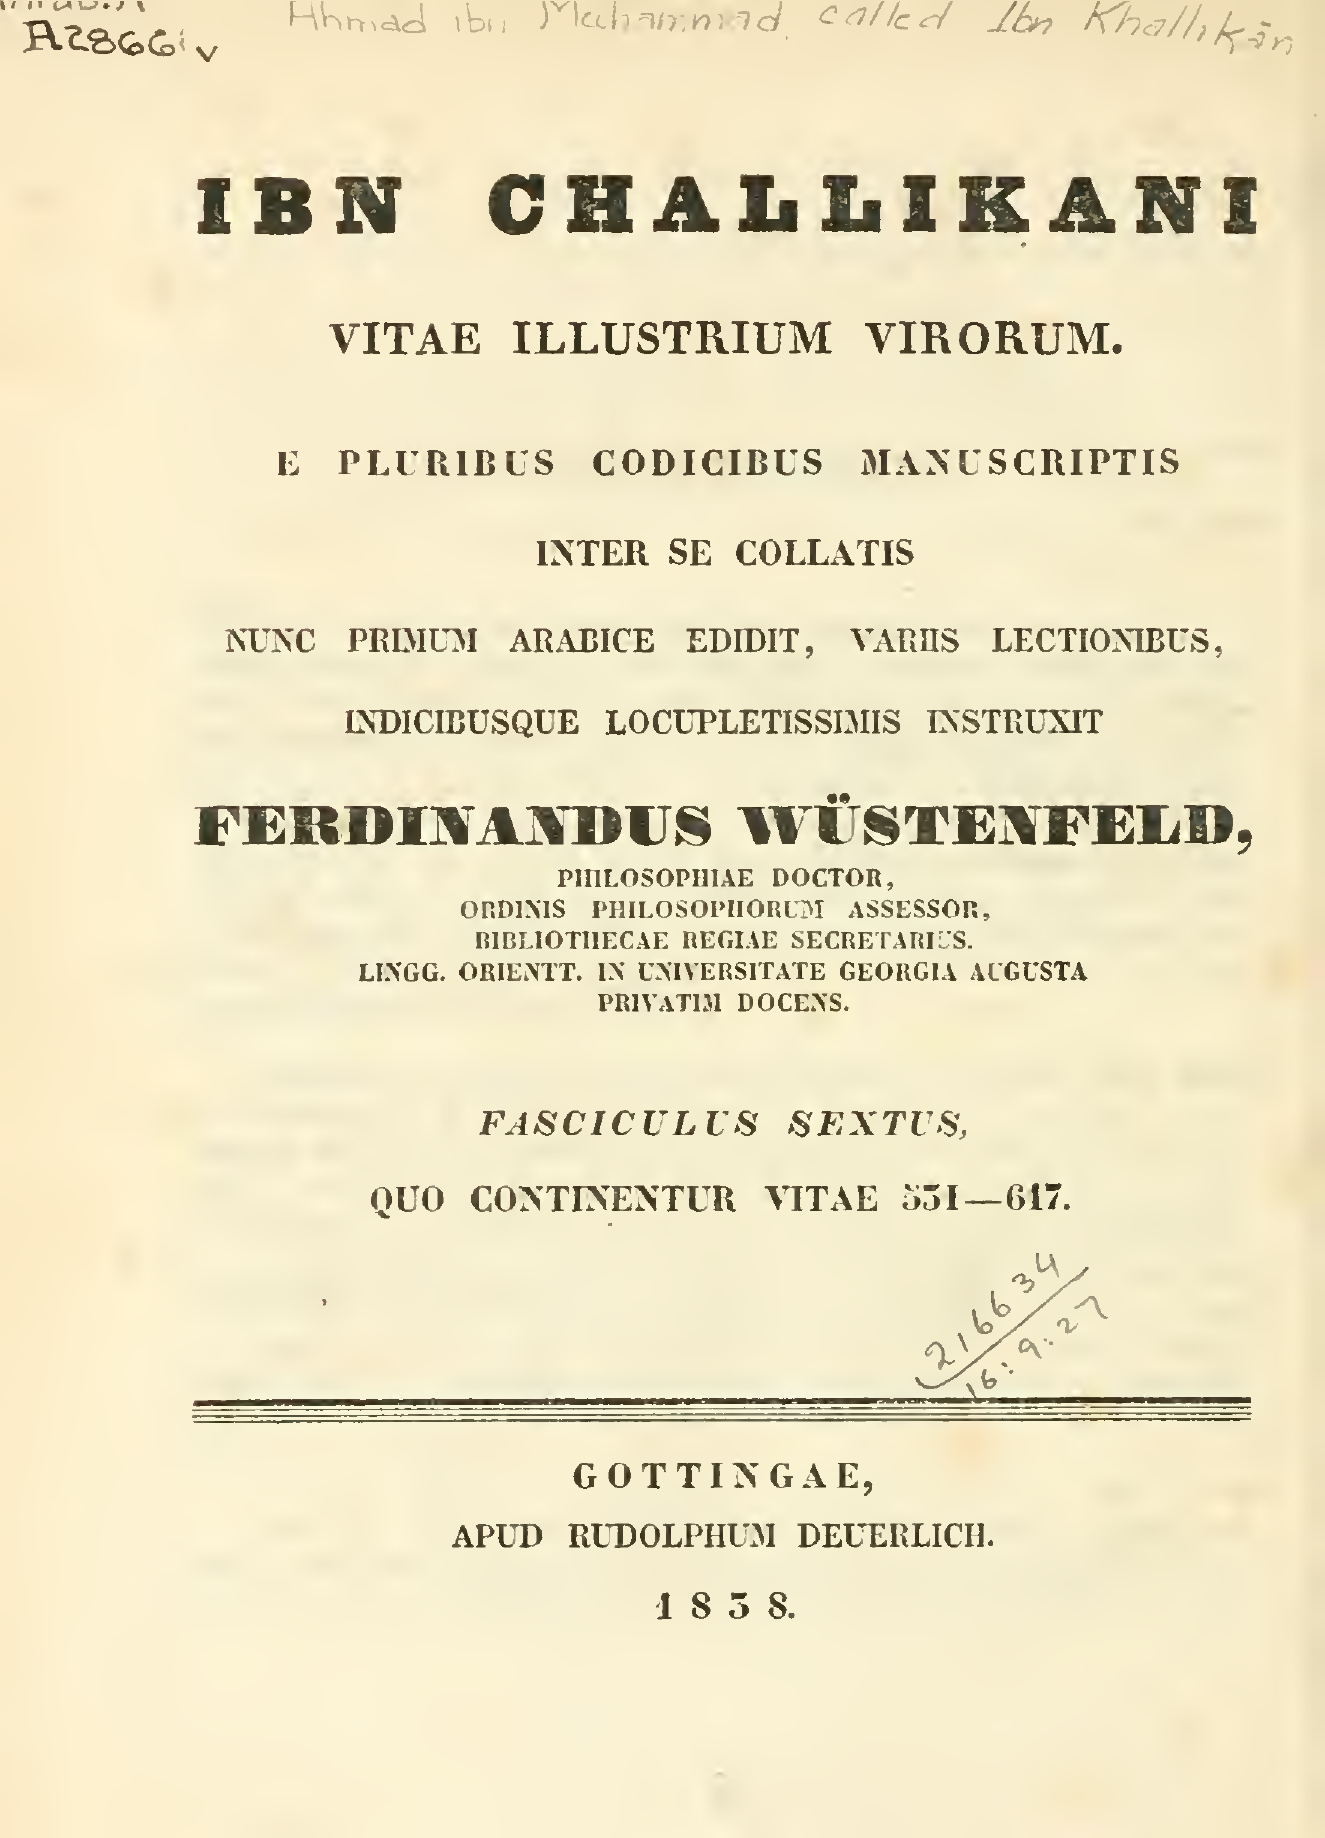 Ahmad ibn Muhammad, called Ibn Khallikān
A2866i v
IBN CHALLIKANI
VITAE ILLUSTRIUM VIRORUM.
E PLURIBUS CODICIBUS MANUSCRIPTIS
INTER SE COLLATIS
NUNC PRIMUM ARABICE EDIDIT, VARIIS LECTIONIBUS,
INDICIBUSQUE LOCUPLETISSIMIS INSTRUXIT
FERDINANDUS WÜSTENFELD,
PHILOSOPHIAE DOCTOR,
ORDINIS PHILOSOPHORUM ASSESSOR,
BIBLIOTHECAE REGIAE SECRETARIUS.
LINGG. ORIENTT. IN UNIVERSITATE GEORGIA AUGUSTA
PRIVATIM DOCENS.
FASCICULUS SEXTUS,
QUO CONTINENTUR VITAE 531—617.
216634
16:9:27
GOTTINGAE,
APUD RUDOLPHUM DEUERLICH.
1838.